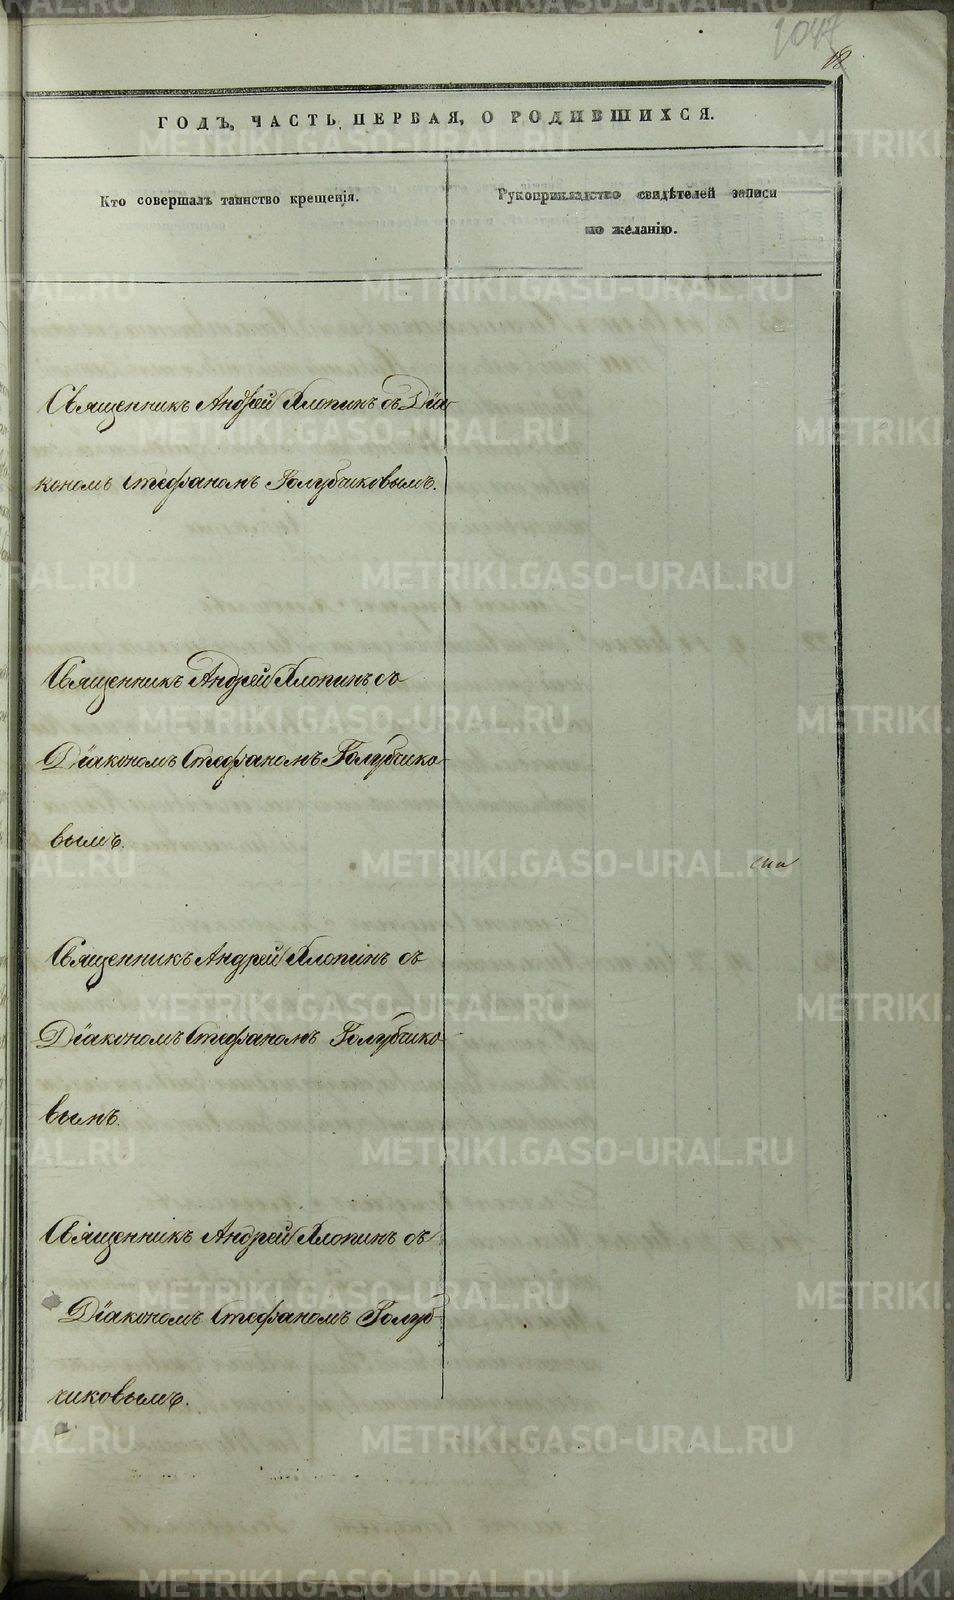 18
ГОДЪ, ЧАСТЬ ПЕРВАЯ, О РОДИВШИХСЯ.
Кто совершалъ таинство крещенія.
Рукоприкладство свидѣтелей записи
по желанію.
Священникъ Андрей Хлопинъ съ Діа-
кономъ Стефаномъ Голубчиковымъ.
Священникъ Андрей Хлопинъ съ
Діакономъ Стефаномъ Голубчико-
вымъ.
Священникъ Андрей Хлопинъ съ
Діакономъ Стефаномъ Голубчико-
вымъ.
Священникъ Андрей Хлопинъ съ
Діакономъ Стефаномъ Голуб-
чиковымъ.
METRIKI.GASO-URAL.RU